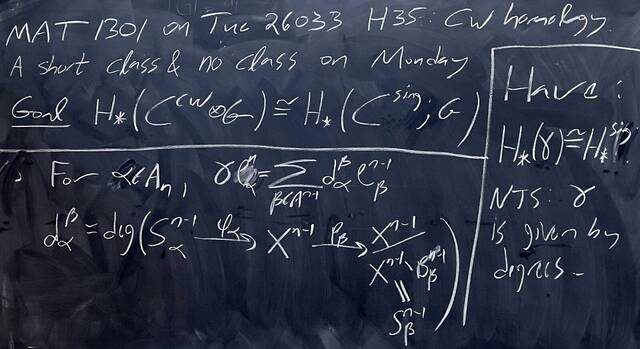 MAT 1301 on Tue 26033 H35: CW homology.
A short class & no class on Monday
Goal H_*(C^{CW}⊗G) ≅ H_*(C^{sing}; G)
For α∈A_n, γe_α^n = Σ_{β∈A^{n-1}} d_α^β e_β^{n-1}
d_α^β = deg(S_α^{n-1} →^{φ_α} X^{n-1} →^{p_β} X^{n-1}/X^{n-1}\B_β^{n-1})
=
S_β^{n-1}
Have:
H_*(γ) ≅ H_*^{sing}
NTS: γ
is given by
degrees.